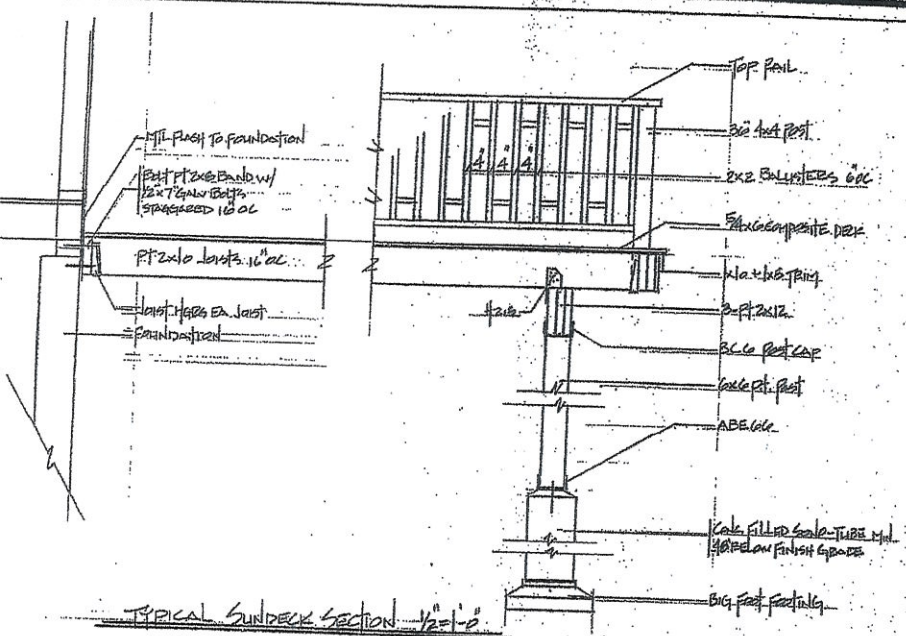 MTL FLASH TO FOUNDATION
BOLT PT 2X8 BAND W/
1/2"X7" GALV BOLTS
STAGGERED 16" OC
PT 2X10 JOISTS 16" OC
JOIST HGRS EA. JOIST
FOUNDATION
4" 4" 4"
TOP RAIL
36" 4X4 POST
2X2 BALUSTERS 6" OC
5/4X6 COMPOSITE DECK
1X10 + 1X8 TRIM
H2.5
3-PT 2X12
BC6 POST CAP
6X6 PT. POST
ABE 66
CONC FILLED SONO-TUBE MIN.
48" BELOW FINISH GRADE
BIG FOOT FOOTING
TYPICAL SUNDECK SECTION 1/2"=1'-0"